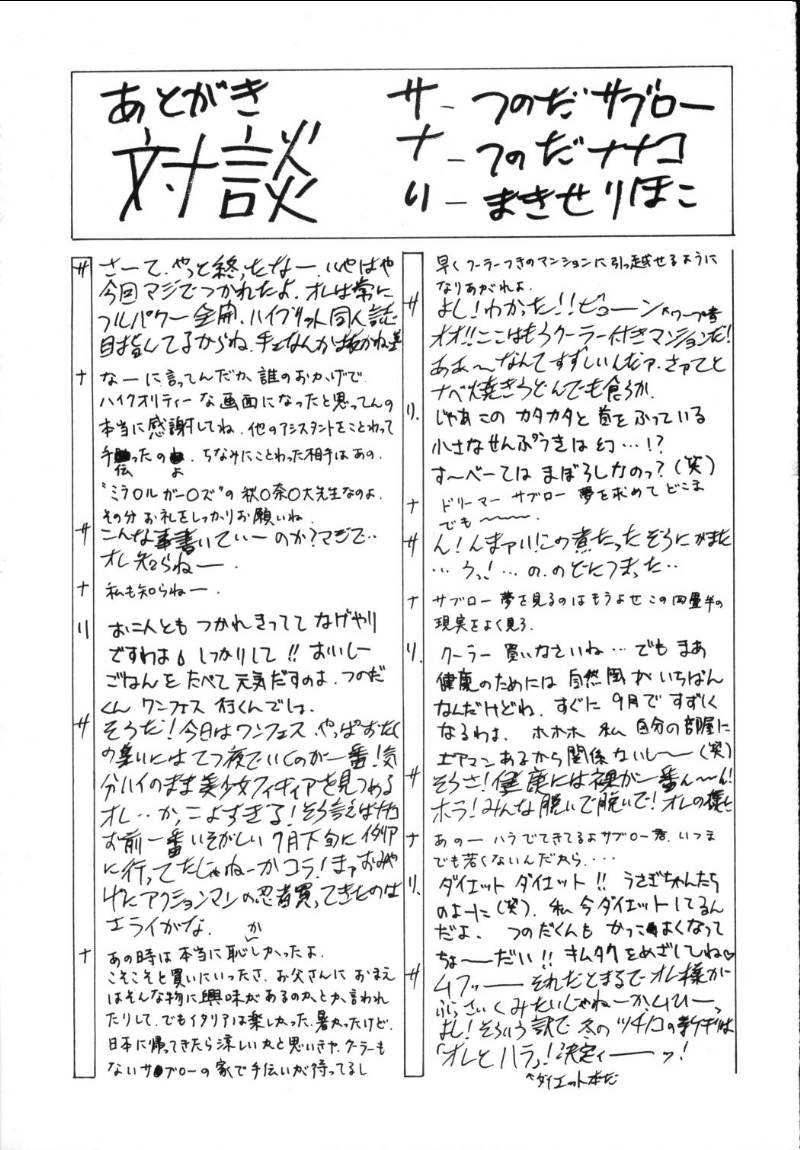 あとがき
対談
サ－つのだサブロー
ナ－つのだナナコ
り－まきせりほこ
サ さーて、やっと終ったなー、いやはや
今回マジでつかれたよ、オレは常に
フルパワー全開、ハイブリット同人誌
目指してるからね、手なんかは抜かねェ
ナ なーに言ってんだか、誰のおかげで
ハイクオリティーな画面になったと思ってんの
本当に感謝してね、他のアシスタントをことわって
手伝ったのよ、ちなみにことわった相手はあの、
"ミラ○ルガー○ズ"の秋○奈○大先生なのよ、
その分お礼をしっかりお願いね、
サ こんな事書いていーのか?マジで‥
オレ知らねー、
ナ 私も知らねー、
り お二人とも つかれきってて なげやり
ですわよ。しっかりして!!おいしー
ごはんをたべて元気だすのよ、つのだ
くん ワンフェス 行くんでしょ、
サ そうだ!今日はワンフェス、やっぱおたく
の集いにはてつ夜でいくのが一番!気
分ハイのまま美少女フィギュアを見つめる
オレ‥か、こよすぎる!そう言えばナナコ
お前一番いそがしい7月下旬にイタリア
に行ってたじゃねーかコラ!まァおみや
げにアクションマンの忍者買ってきたのは
エライがな、
ナ あの時は本当に恥かしかったよ、
こそこそと買いにいったさ、お父さんにおまえ
はそんな物に興味があるのかとか言われ
たりして、でもイタリアは楽しかった、暑かったけど、
日本に帰ってきたら涼しいかと思いきや、クーラーも
ないサブローの家で手伝いが待ってるし
早くクーラーつきのマンションに引っ越せるように
なりあがれよ、
サ よし!わかった!!ビューン←ワープ音
オオ!!ここはもうクーラー付きマンションだ!
ああ～なんてすずしいんだァ、さァてと
ナベ焼きうどんでも食うか、
り、じゃあこの カタカタと首をふっている
小さなせんぷうきは幻…!?
す～べーては まぼろしなのっ?(笑)
ナ ドリーマー サブロー 夢を求めてどこま
でも～～～、
サ ん!んまァい!この煮たったぞうにがまた
…うっ!…の、のどにつまった‥
ナ サブロー夢を見るのはもうよせこの四畳半の
現実をよく見ろ、
り、クーラー買いなさいね…でも まあ
健康のためには自然風がいちばん
なんだけどね、すぐに9月ですずしく
なるわよ、ホホホ 私 自分の部屋に
エアマンあるから関係ないし～(笑)
サ そうさ!健康には裸が一番ん～ん!
ホラ!みんな脱いで脱いで!オレの様に
ナ あのー ハラでてきてるよサブロー君、いつま
でも若くないんだから、‥‥
り、ダイエット ダイエット!!うさぎちゃんたち
のよーに(笑)、私今ダイエットしてるん
だよ、つのだくんも かっこよくなって
ちょ～だい!!キムタクをめざしてね♡
サ ムフッ――それだとまるでオレ様が
ぶさいくみたいじゃねーか、ムひーっ
よし!そういう訳で冬のツチノコの新ケンは
「オレとハラ」!決定ィ――ッ!
↑ダイエット本だ